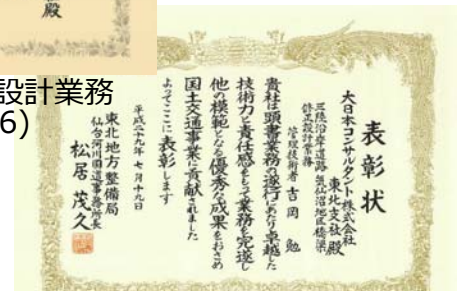 殿
設計業務
6)
表彰状
大日本コンサルタント株式会社
東北支社殿
三陸沿岸道路気仙沼地区橋梁
修正設計業務
管理技術者 吉岡 勉
貴社は頭書業務の遂行にあたり卓越した
技術力と責任感をもって業務を完遂し
他の模範となる優秀な成果をおさめ
国土交通事業に貢献されました
よってここに表彰します
平成二十九年七月十九日
東北地方整備局
仙台河川国道事務所長
松居 茂久